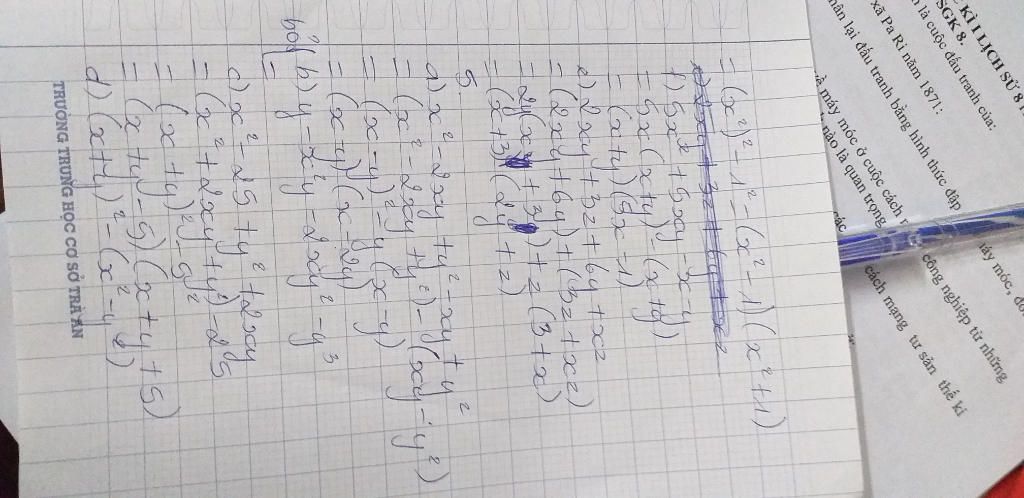 = (x²)² - 1² = (x² - 1)(x² + 1)
f) 5x² + 5xy - x - y
= 5x(x+y) - (x+y)
= (x+y)(5x - 1)
e) 2xy + 3z + 6y + xz
= (2xy + 6y) + (3z + xz)
= 2y(x + 3) + z(3 + x)
= (x+3)(2y + z)
5
a) x² - 2xy + y² - xy + y²
= (x² - 2xy + y²) - (xy - y²)
= (x - y)² - y(x - y)
= (x - y)(x - 2y)
b) y - x²y - 2xy² - y³
=
c) x² - 25 + y² + 2xy
= (x² + 2xy + y²) - 25
= (x + y)² - 5²
= (x + y - 5)(x + y + 5)
d) (x+y)² - (x² - y²)
TRƯỜNG TRUNG HỌC CƠ SỞ TRÀ AN
KÌ LỊCH SỬ 8
SGK 8.
là cuộc đấu tranh của:
xã Pa Ri năm 1871:
lại đấu tranh bằng hình thức đập
máy móc ở cuộc cách
nào là quan trọng
máy móc,
công nghiệp từ những
các
cách mạng tư sản thế kỉ